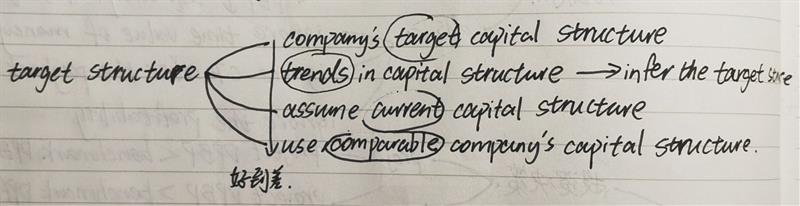 company's target capital structure
target structure
trends in capital structure → infer the target
assume current capital structure
use comparable company's capital structure.
好到差.